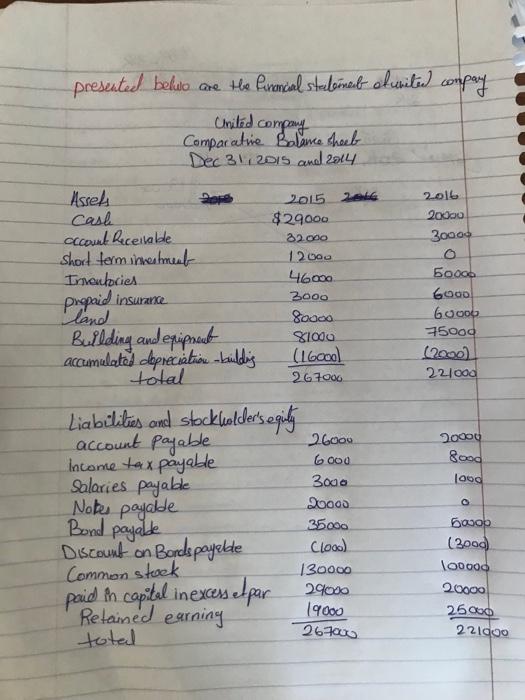 presented below are the financial statement of united compay
United company
Comparative Balance sheet
Dec 31, 2015 and 2014
Assets 2015 2016
Cash $29000 20000
account Receivable 32000 30000
Short term investment 12000 0
Inventories 46000 50000
prepaid insurance 3000 6000
land 80000 60000
Building and equipment 81000 75000
accumulated depreciation - building (16000) (2000)
total 267000 221000
Liabilities and stockholder's equity
account payable 26000 20000
Income tax payable 6000 8000
Salaries payable 3000 1000
Notes payable 20000 0
Bond payable 35000 50000
Discount on Bonds payable (1000) (3000)
Common stock 130000 100000
paid in capital in excess of par 29000 20000
Retained earning 19000 25000
total 267000 221000